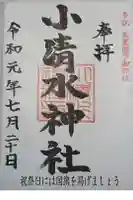 奉拝
小清水神社
令和元年七月二十日
祝祭日には国旗を揚げましょう